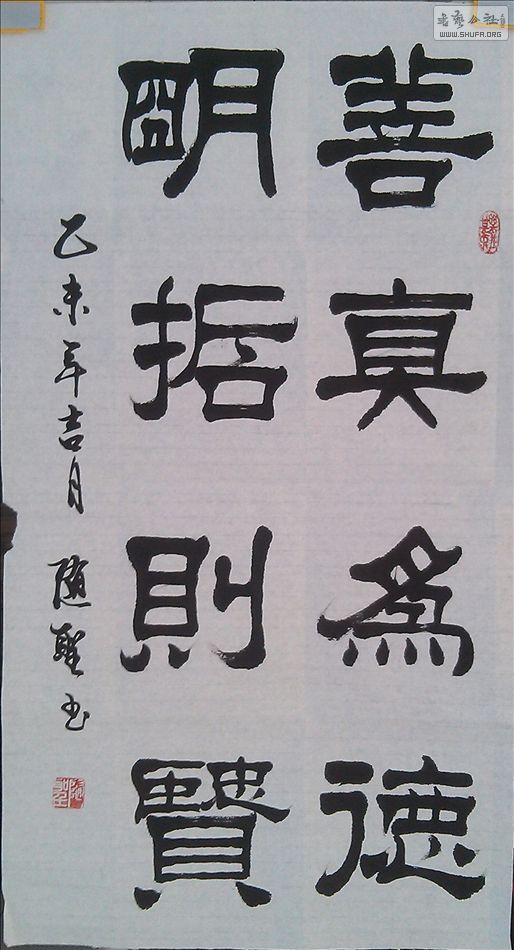 善真為德
明哲則賢
乙未年吉月 随聖书
書藝公社
WWW.SHUFA.ORG